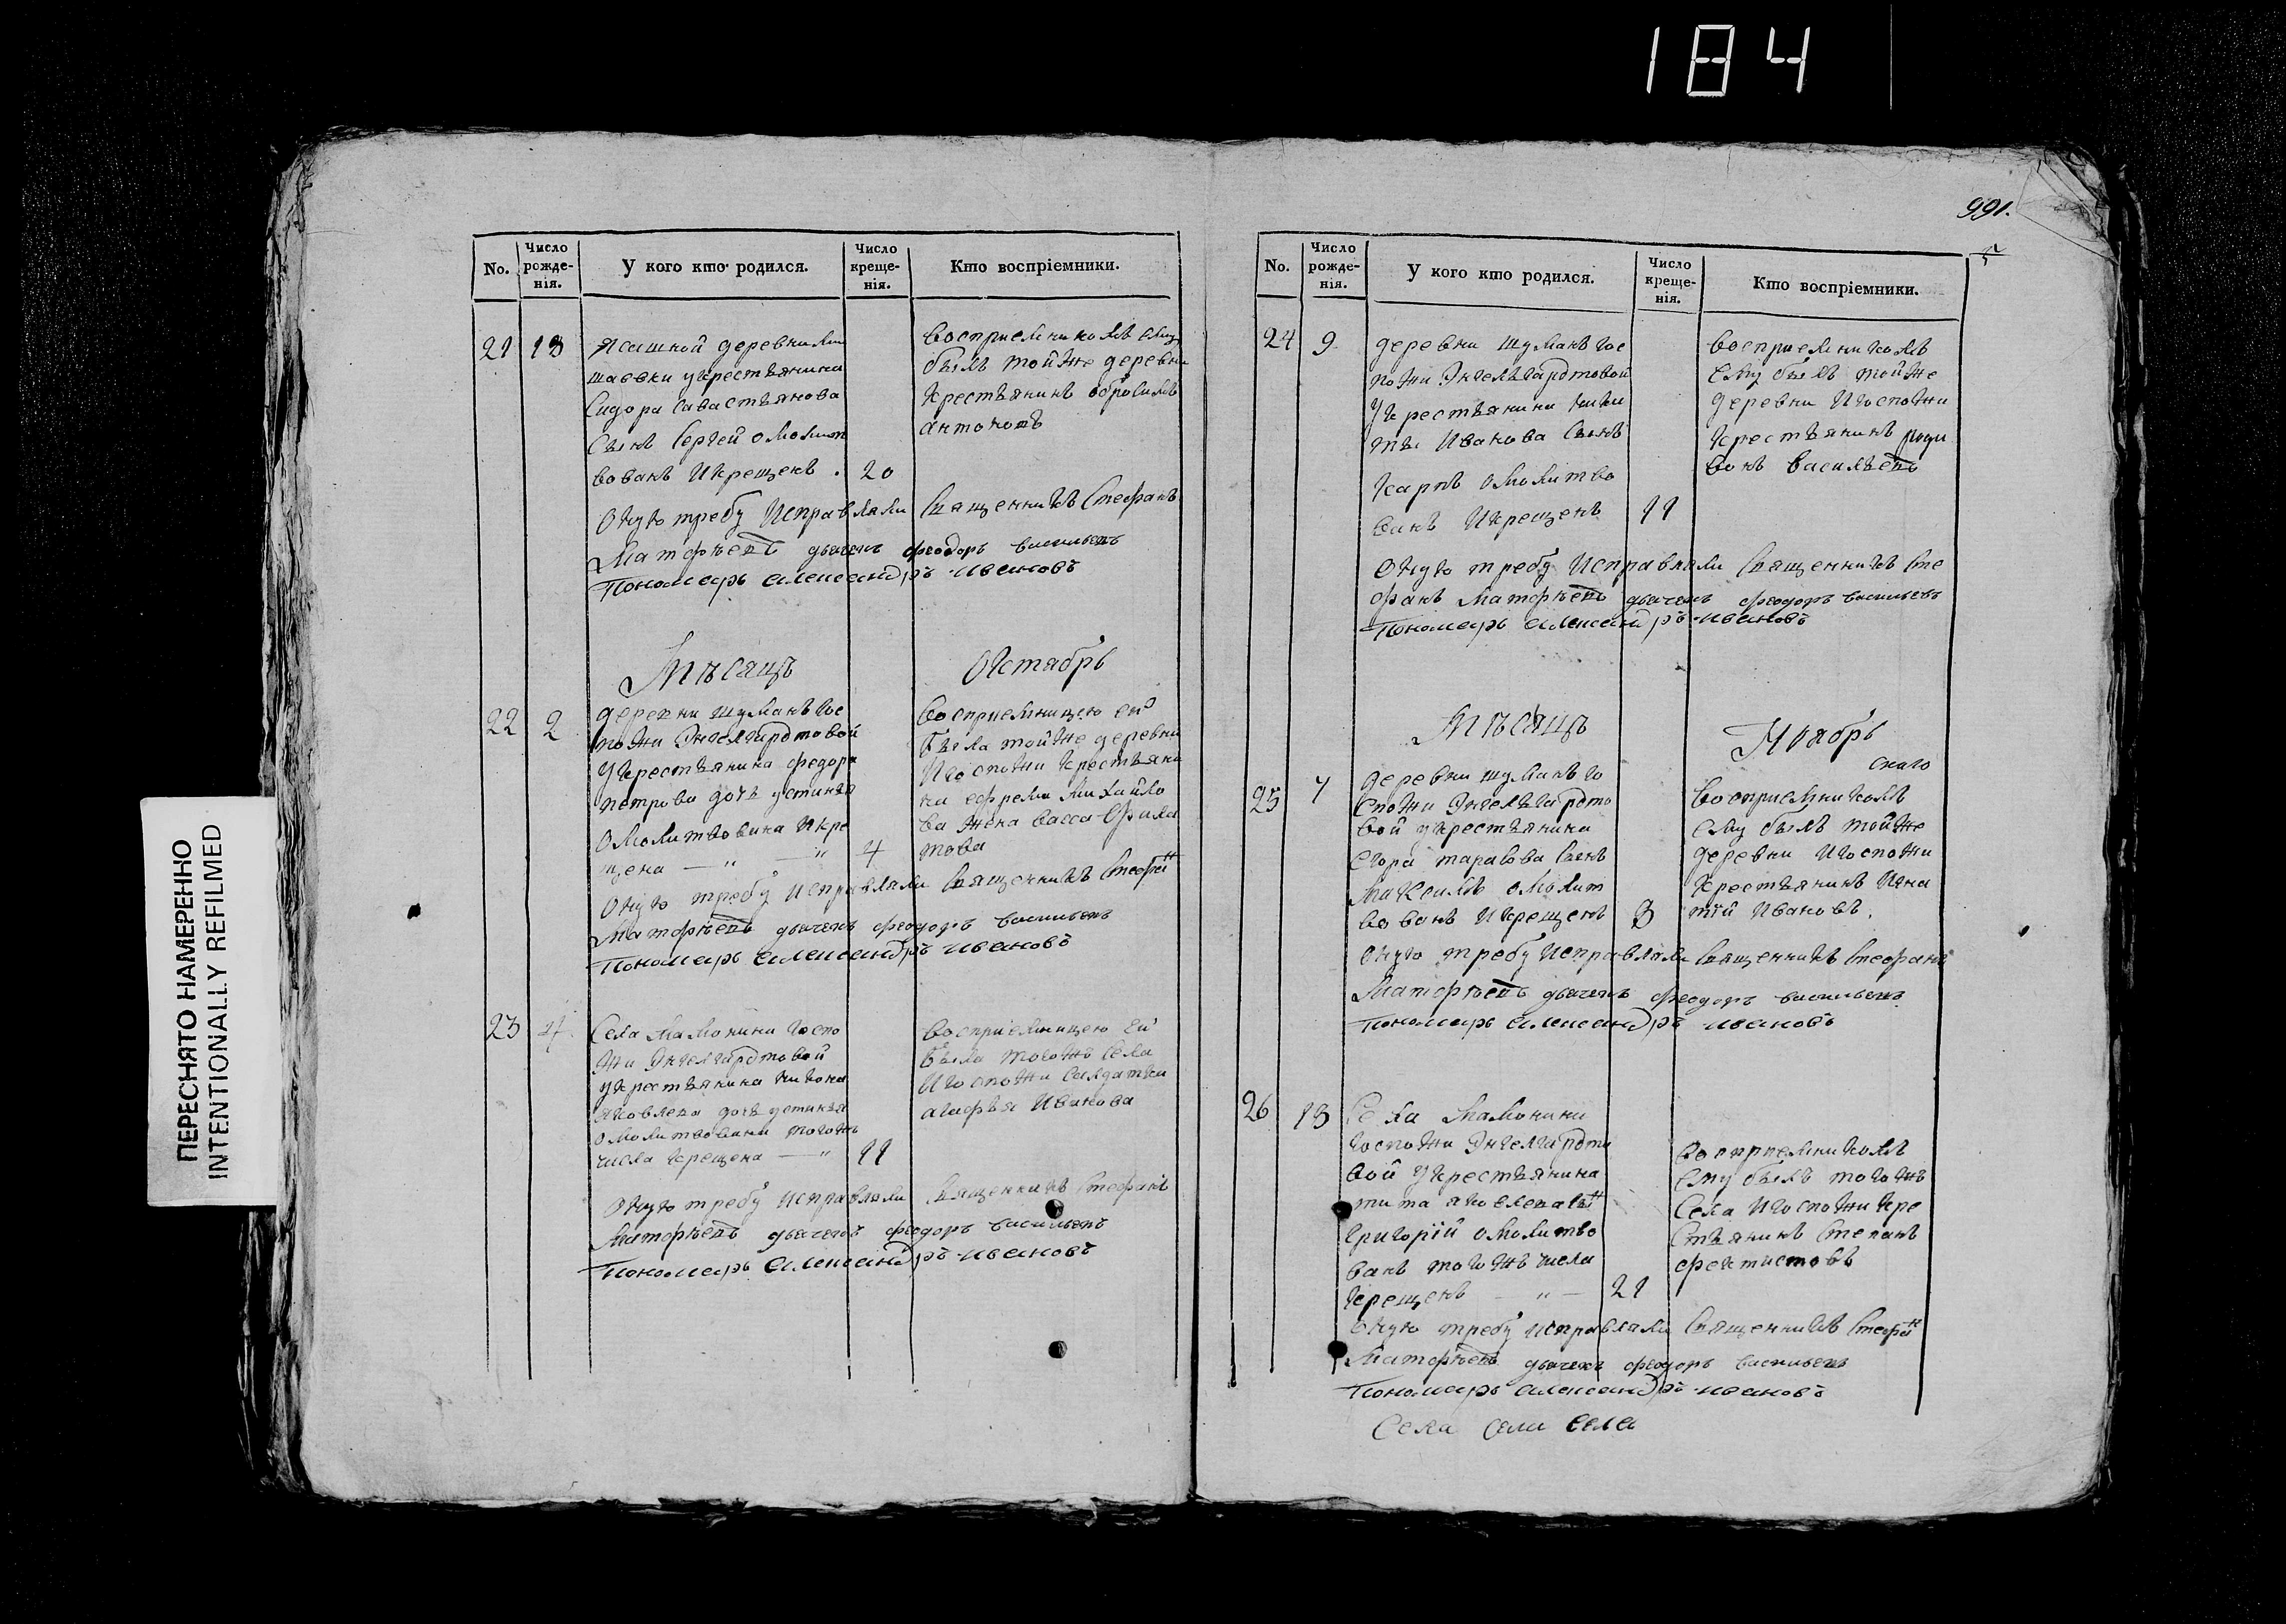 184
991.
ПЕРЕСНЯТО НАМЕРЕННО
INTENTIONALLY REFILMED
No.
Число рожде-нія.
У кого кто родился.
Число креще-нія.
Кто воспріемники.
21 13
Ясашной деревни Ми
шавки укрестьянина
Сидора савастьянова
Сынъ Сергей омолит
вованъ Икрещенъ . 20
Восприемникомъ ему
былъ тойже деревни
крестьянинъ
антоновъ
Оную требу Исправляли Священникъ Стефанъ
Матфѣевъ дьячекъ феодоръ васильевъ
Пономарь александръ ивановъ
Мѣсяцъ Октябрь
22 2
деревни шуманъ гос
пожи Энгелгардтовой
укрестьянина федора
петрова дочь устинья
омолитвована Икре
щена — " — " 4
восприемницею ей
была тойже деревни
Игоспожи крестьяни
на ефрема михайло
ва жена васса Фила
това
Оную требу Исправляли Священникъ Стефанъ
Матфѣевъ дьячекъ феодоръ васильевъ
Пономарь александръ ивановъ
23 4
Села мамонина госпо
жи Энгелгардтовой
укрестьянина никона
яковлева дочь устинья
омолитвована тогожъ
числа крещена — " 11
Восприемницею ей
была тогожъ села
Игоспожи салдатка
агафья Иванова
Оную требу Исправляли Священникъ Стефанъ
Матфѣевъ дьячекъ феодоръ васильевъ
Пономарь александръ ивановъ
No.
Число рожде-нія.
У кого кто родился.
Число креще-нія.
Кто воспріемники.
24 9
деревни шуманъ гос
пожи Энгельгардтовой
Укрестьянина ники
ты Иванова Сынъ
карпъ омолитво
ванъ Икрещенъ 11
восприемникомъ
ему былъ тойже
деревни Игоспожи
крестьянинъ роди
вонъ васильевъ
Оную требу Исправляли Священникъ Сте
фанъ Матфѣевъ дьячекъ феодоръ васильевъ
Пономарь александръ ивановъ
Мѣсяцъ Ноябрь
25 7
деревни шуманъ го
спожи Энгельгардто
вой укрестьянина
егора тарасова сынъ
максимъ омолит
вованъ Икрещенъ 8
восприемникомъ
ему былъ тойже
деревни Игоспожи
крестьянинъ Игна
тій Ивановъ.
Оную требу Исправляли Священникъ Стефанъ
Матфѣевъ дьячекъ феодоръ васильевъ
Пономарь александръ ивановъ
26 13
Села Мамонина
госпожи Энгелгардто
вой Укрестьянина
тита яковлева сынъ
григорій омолитво
ванъ тогожъ числа
крещенъ — " — 21
восприемникомъ
ему былъ тогожъ
Села Игоспожи кре
стьянинъ Степанъ
фектистовъ
Оную требу Исправляли Священникъ Стефанъ
Матфѣевъ дьячекъ феодоръ васильевъ
Пономарь александръ ивановъ
Села